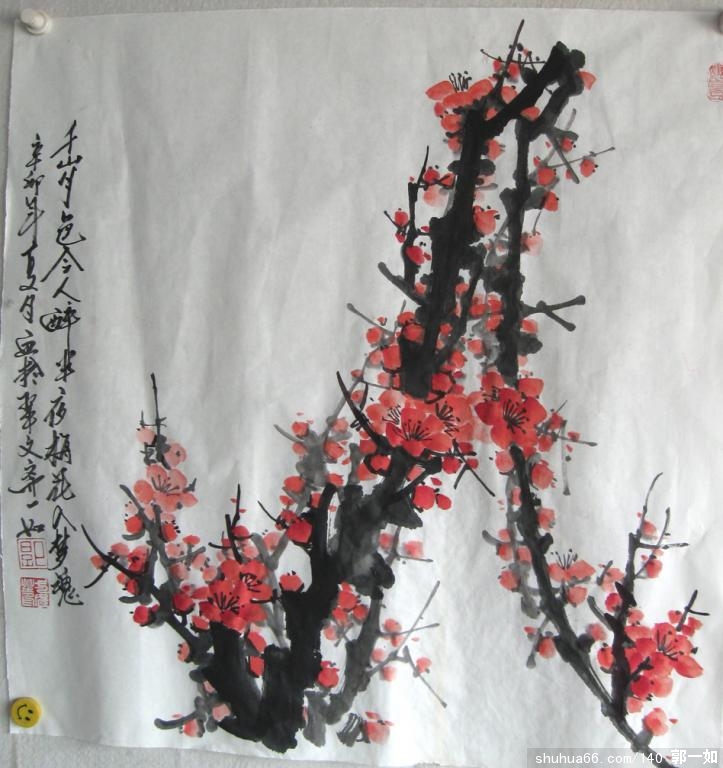 千山月色令人醉半夜梅花入梦魂
辛卯年夏月画於翠文斋一如
shuhua66.com/140 郭一如